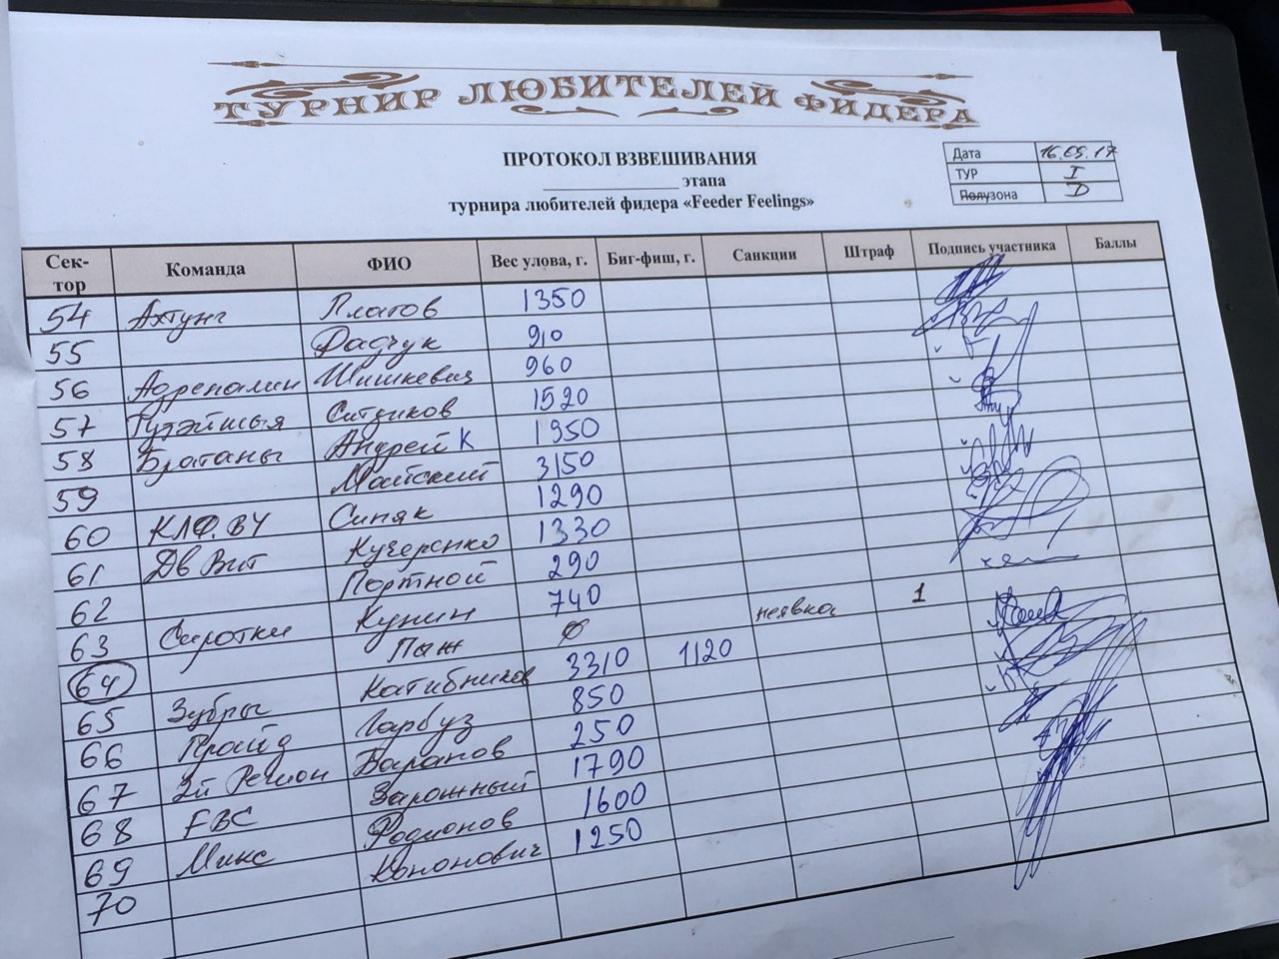 ТУРНИР ЛЮБИТЕЛЕЙ ФИДЕРА
ПРОТОКОЛ ВЗВЕШИВАНИЯ
этапа
турнира любителей фидера «Feeder Feelings»
Дата 16.05.17
ТУР I
Полузона D
Сек-тор Команда ФИО Вес улова, г. Биг-фиш, г. Санкции Штраф Подпись участника Баллы
54 Ахтунг Платов 1350
55 Радчук 910
56 Адреналин Шишкевич 960
57 Тутэйшыя Ситдиков 1520
58 Братаны Андрей К 1950
59 Майский 3150
60 КЛФ.ВУ Синяк 1290
61 Дв Вит Кучеренко 1330
62 Портной 290
63 Сиротки Кунин 740
64 Паж 0 неявка 1
65 Зубры Катибников 3310 1120
66 Прайд Гарбуз 850
67 3й Регион Баранов 250
68 FBC Зарожный 1790
69 Микс Родионов 1600
70 Кононович 1250